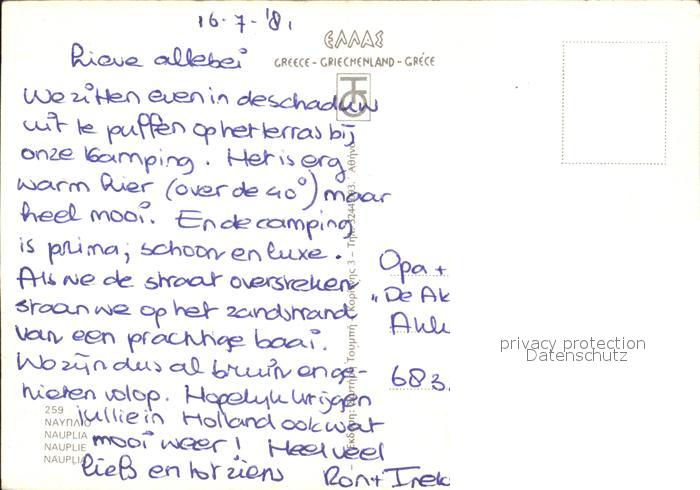 16-7-'81
ΕΛΛΑΣ
GREECE - GRIECHENLAND - GRÈCE
Lieve allebei
We zitten even in de schaduw
uit te puffen op het terras bij
onze Camping. Het is erg
warm hier (over de 40°) maar
heel mooi. En de camping
is prima; schoon en luxe.
Als we de straat oversteken
staan we op het zandstrand
van een prachtige baai.
We zijn dus al bruin en ge-
nieten volop. Hopelijk krijgen
jullie in Holland ook wat
mooi weer! Heel veel
liefs en tot ziens Ron + Inek
259
ΝΑΥΠΛΙΟ
NAUPLIA
NAUPLIE
NAUPLIA
Opa +
"De Ak
683.
privacy protection
Datenschutz